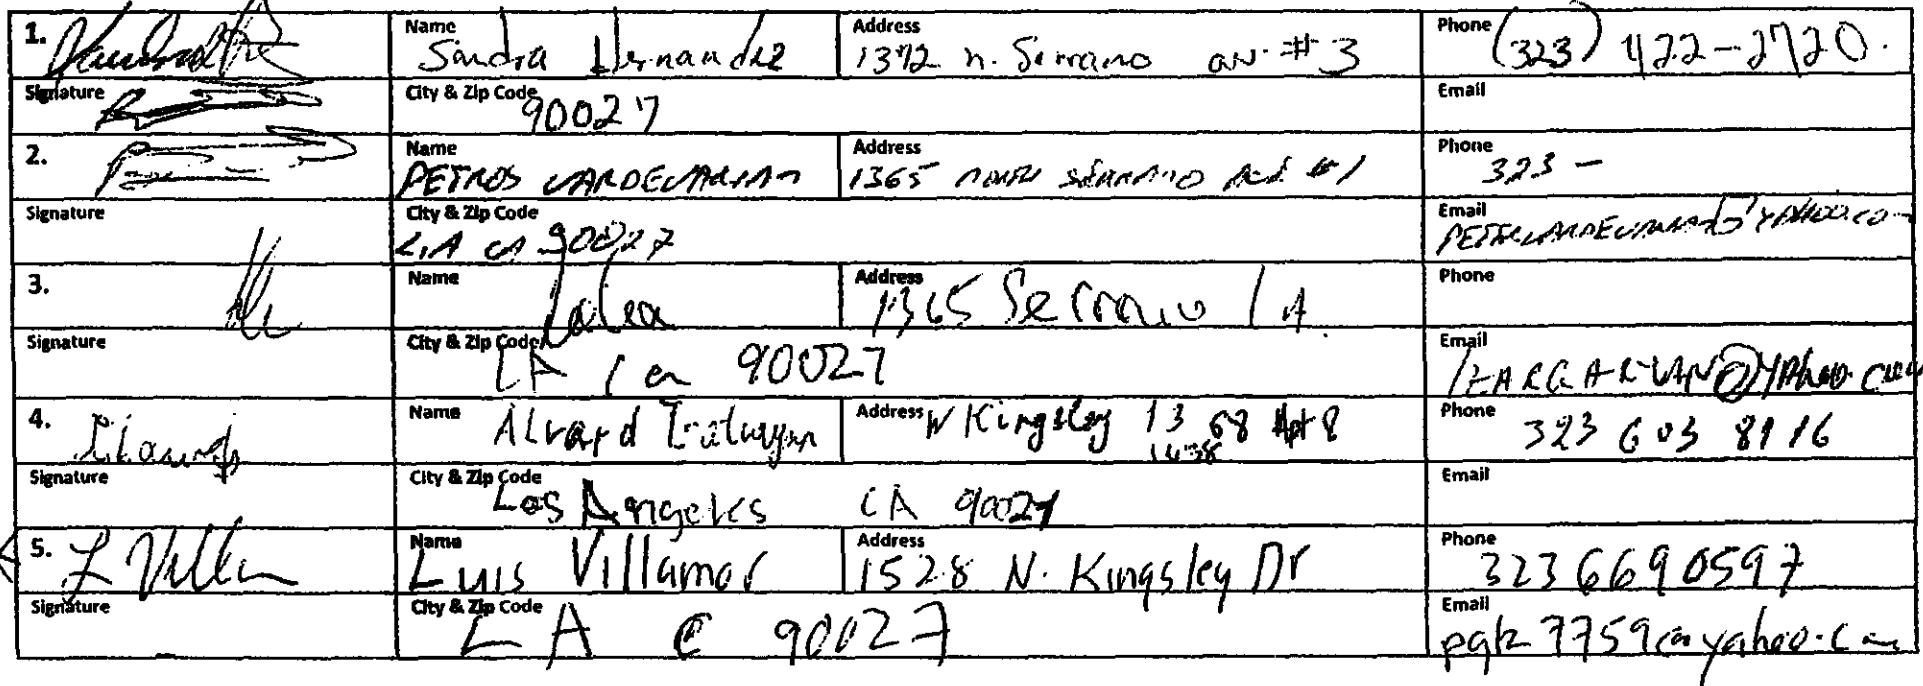 1. Name Sandra Hernandez Address 1372 N. Serrano av # 3 Phone (323) 422-2720.
Signature City & Zip Code 90027 Email
2. Name PETROS VARDEVARIAN Address 1365 NORTH SERRANO AVE #1 Phone 323 -
Signature City & Zip Code L.A CA 90027 Email
3. Name Address 1365 Serrano LA Phone
Signature City & Zip Code LA Ca 90027 Email
4. Name Alvard Address N Kingsley 1368 Apt 8 Phone 323 603 8116
Signature City & Zip Code Los Angeles CA 90027 Email
5. L Villa Name Luis Villamor Address 1528 N. Kingsley Dr Phone 323 6690597
Signature City & Zip Code LA C 90027 Email pgk7759@yahoo.com